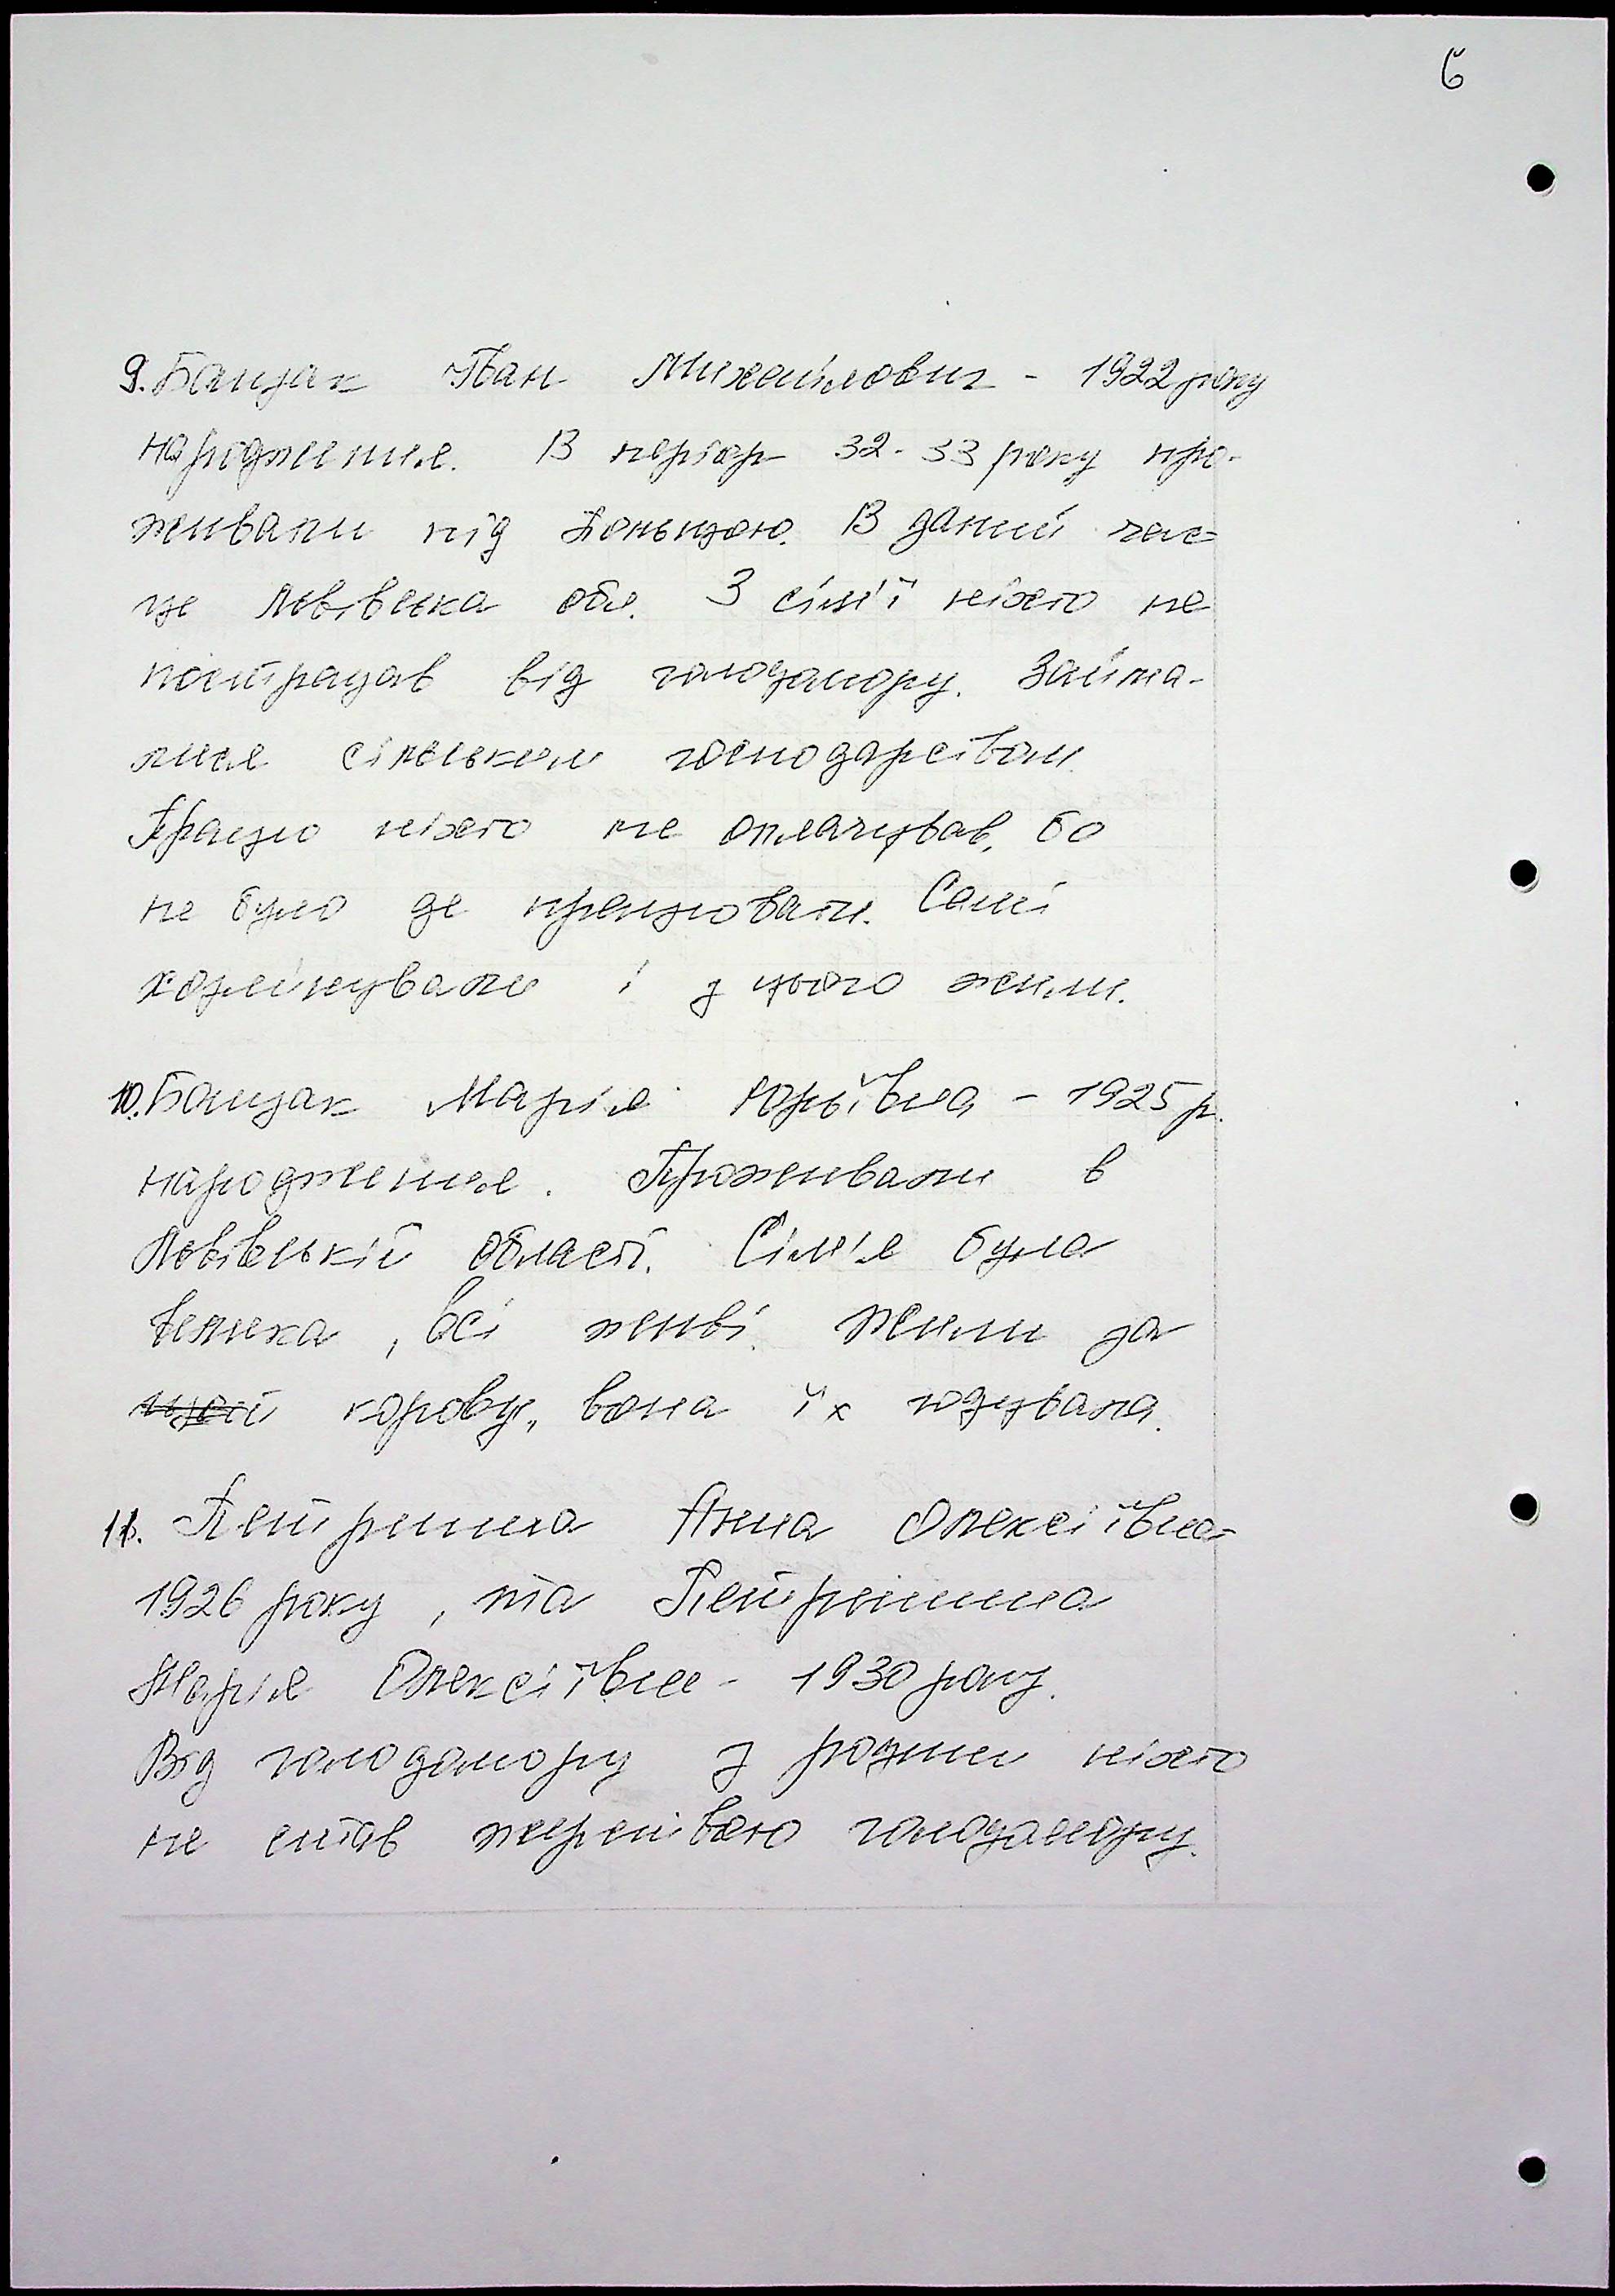 6
9. Банзак Іван Михайлович - 1922 року
народження. В період 32-33 року про-
живали під Польщою. В даний час -
це Львівська обл. З сім'ї ніхто не
пострадав від голодомору. Займа-
лися сільським господарством.
Працю ніхто не оплачував, бо
не було де працювати. Самі
господарювали і з цього жили.
10. Банзак Марія Юріївна - 1925 р.
народження. Проживали в
Львівській області. Сім'я була
велика, всі живі. Жили за
корову, вона їх годувала.
11. Петришина Анна Олексіївна -
1926 року, та Петришина
Марія Олексіївна - 1930 року.
Від голодомору з родини ніхто
не став жертвою голодомору.